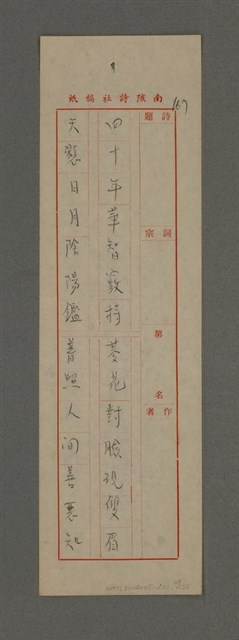 167
南陔詩社稿紙
詩題
詞宗
第 名
作者
四十年華智竅持菱花對臉現雙眉
天懸日月陰陽鑑普照人間善惡知